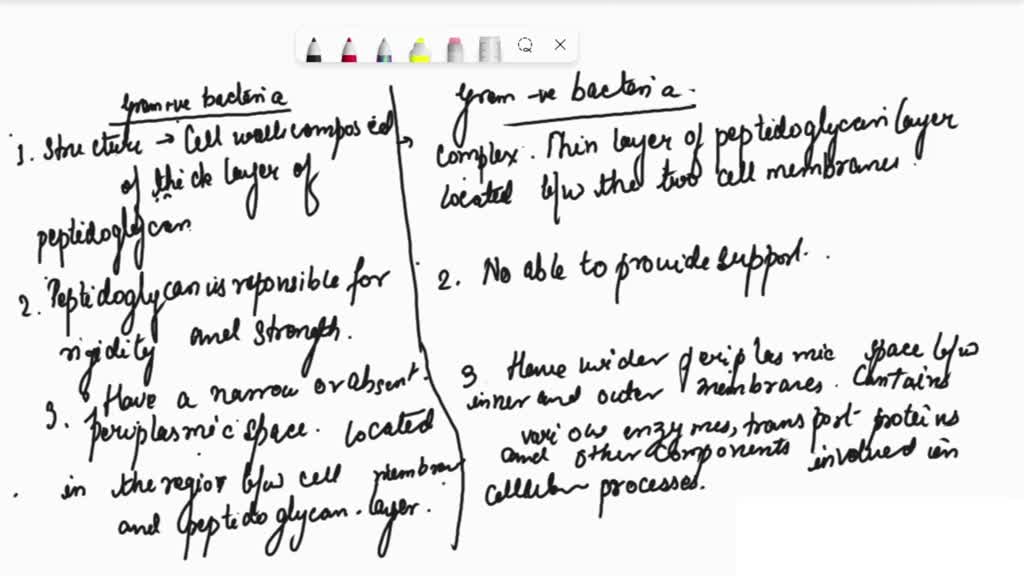 Gram +ve bacteria
1. Structure → Cell wall composed
of thick layer of
peptidoglycan
2. Peptidoglycan is reponsible for
rigidity and strength.
3. Have a narrow or absent
periplasmic space. Located
in the region b/w cell membrane
and peptidoglycan layer.
Gram -ve bacteria.
→ complex. Thin layer of peptidoglycan layer
located b/w the two cell membranes.
2. No able to provide support.
3 Have wider periplasmic space b/w
inner and outer membranes. Contains
various enzymes, transport proteins
and other components involved in
cellular processes.